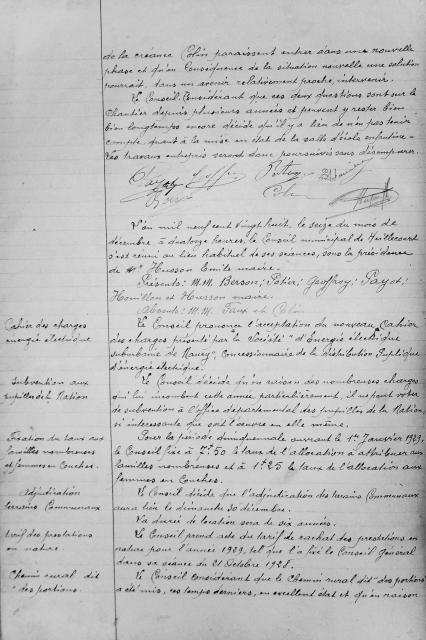 de la créance Colin paraissent entrer dans une nouvelle
phase et qu'en conséquence de la situation nouvelle une solution
pourrait, dans un avenir relativement proche, intervenir.
Le Conseil Considérant que ces deux questions sont sur le
chantier depuis plusieurs années et peuvent y rester bien
bien longtemps encore décide qu'il y a lieu de n'en pas tenir
compte, quant à la mise en état de la salle d'école enfantine.
Les travaux entrepris seront donc poursuivis sans désemparer.
L'an mil neuf cent vingt huit, le seize du mois de
décembre, à quatorze heures, le Conseil municipal de Heillecourt
s'est réuni au lieu habituel de ses séances, sous la présidence
de Mr Husson Emile maire.
Présents: M.M. Berson; Potier; Geoffroy; Payot;
Houillon et Husson maire.
Absents: M.M. Faux et Colin
Cahier des charges
énergie électrique
Le Conseil prononce l'acceptation du nouveau Cahier
des charges présenté par la Société "d'Energie électrique
suburbaine de Nancy", Concessionnaire de la Distribution Publique
d'énergie électrique.
Subvention aux
pupilles de la Nation
Le Conseil décide qu'en raison des nombreuses charges
qui lui incombent cette année particulièrement, il ne peut voter
de subvention à l'office départemental des pupilles de la Nation,
si intéressante que soit l'oeuvre en elle même.
Fixation du taux aux
familles nombreuses
et femmes en couches.
Pour la période quinquennale ouvrant le 1er Janvier 1929,
le Conseil fixe à 2f50 le taux de l'allocation à attribuer aux
familles nombreuses et à 1f25 le taux de l'allocation aux
femmes en Couches.
Adjudication
terrains Communaux
Le Conseil décide que l'adjudication des terrains Communaux
aura lieu le dimanche 30 décembre.
La durée de location sera de six années.
tarif des prestations
en nature.
Le Conseil prend acte du tarif de rachat des prestations en
nature pour l'année 1929, tel que l'a fixé le Conseil Général
dans sa séance du 21 Octobre 1928.
Chemin rural dit
"des portions.
Le Conseil considérant que le Chemin rural dit "des portions"
a été mis, ces temps derniers, en excellent état et qu'en raison